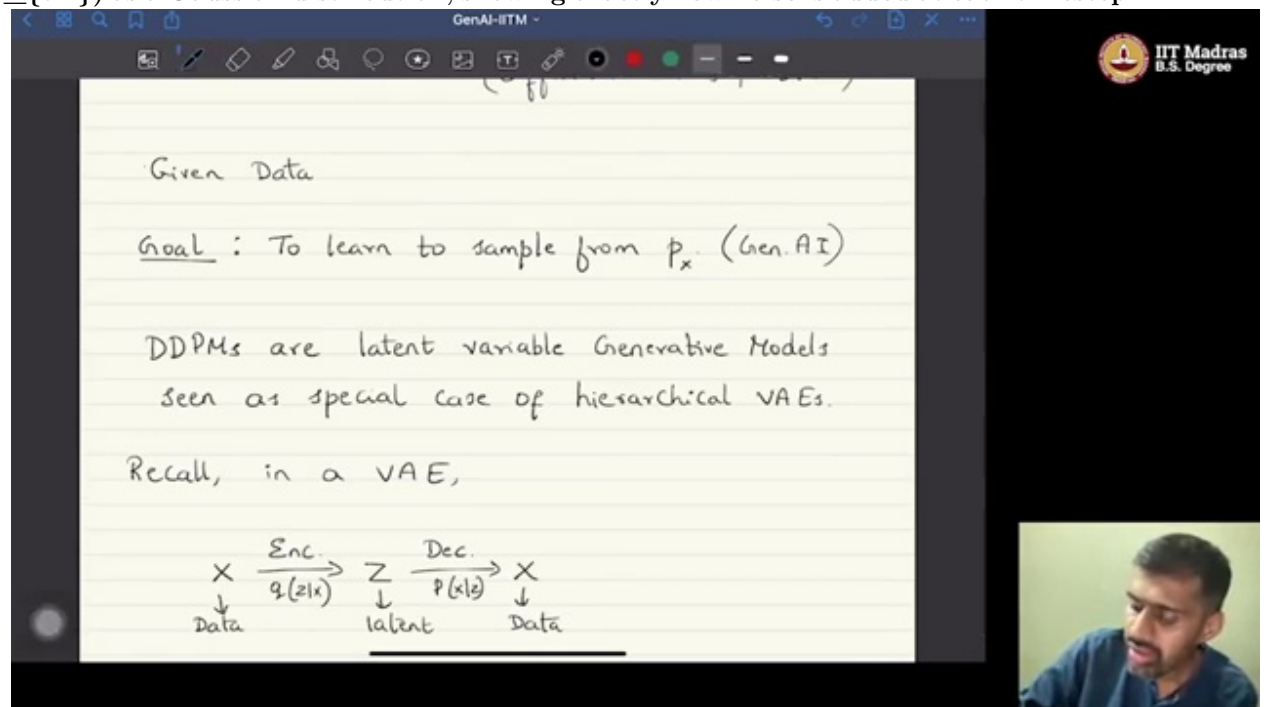 GenAI-IITM
IIT Madras
B.S. Degree
Given Data
Goal : To learn to sample from px. (Gen. AI)
DDPMs are latent variable Generative Models
seen as special case of hierarchical VAEs.
Recall, in a VAE,
Enc. Dec.
X Z X
q(z|x) p(x|z)
Data latent Data